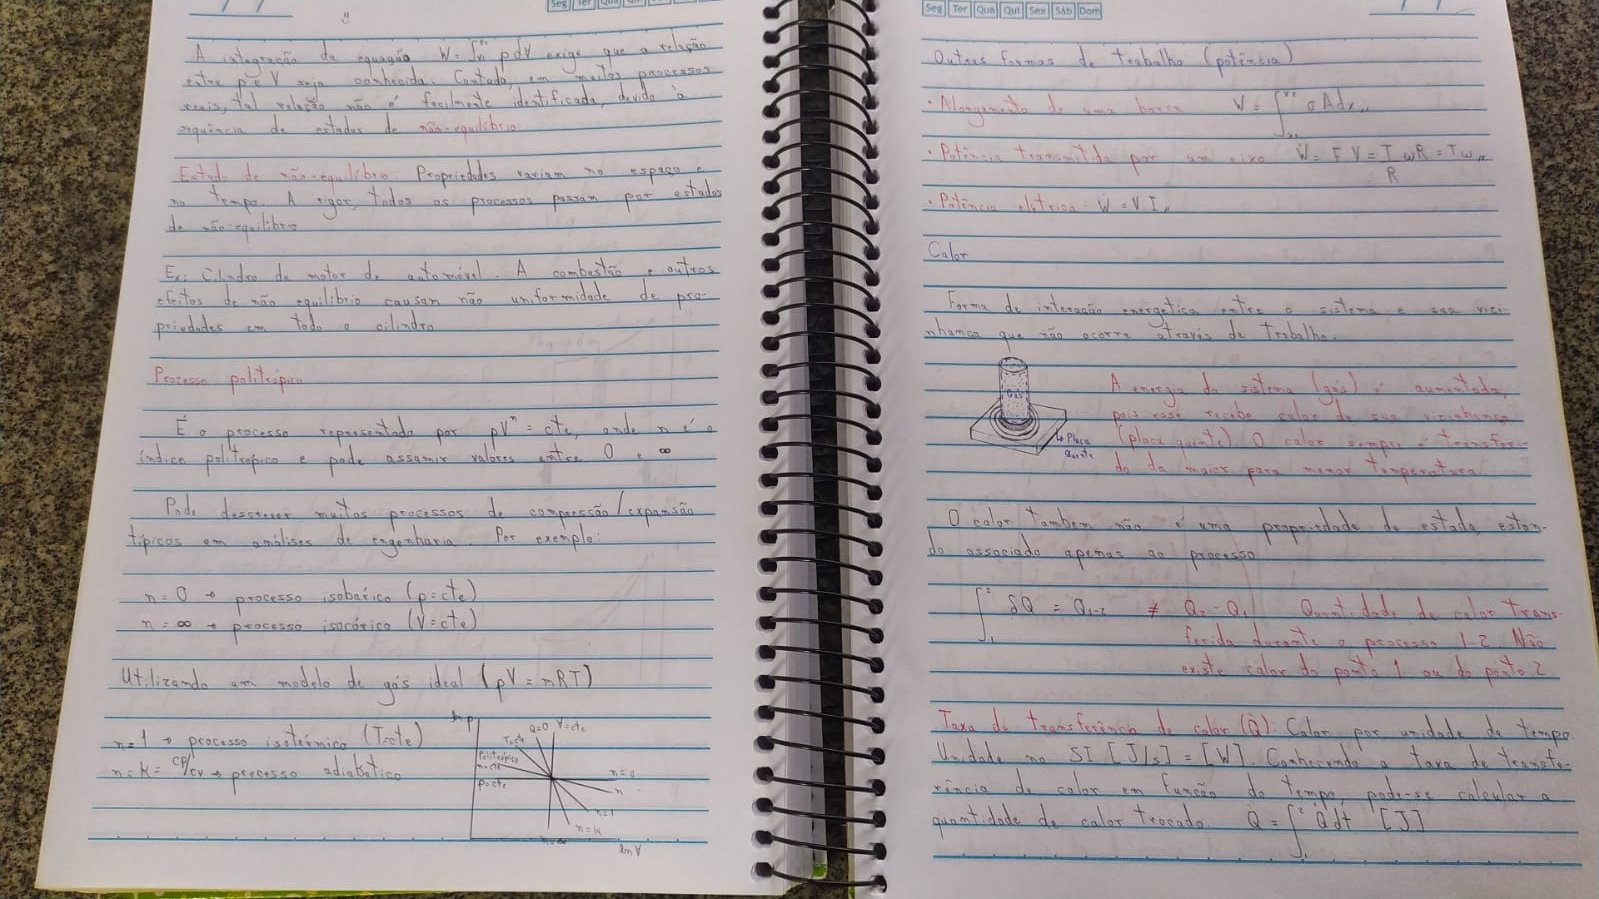 Seg Ter Qua Qui
A integração da equação W = ∫ p dV exige que a relação
entre p e V seja conhecida. Contudo, em muitos processos
reais, tal relação não é facilmente identificada, devido à
sequência de estados de não-equilíbrio
Estado de não-equilíbrio: Propriedades variam no espaço e
no tempo. A rigor, todos os processos passam por estados
de não-equilíbrio
Ex: Cilindro de motor de automóvel. A combustão e outros
efeitos de não equilíbrio causam não uniformidade de pro-
priedades em todo o cilindro
Processo politrópico
É o processo representado por pVⁿ = cte, onde n é o
índice politrópico e pode assumir valores entre 0 e ∞
Pode descrever muitos processos de compressão/expansão
típicos em análises de engenharia. Por exemplo:
n = 0 → processo isobárico (p = cte)
n = ∞ → processo isocórico (V = cte)
Utilizando um modelo de gás ideal (pV = mRT)
n = 1 → processo isotérmico (T = cte)
n = K = cp/cv → processo adiabático
ln p
Q=0 V=cte
T=cte
Politrópico
n=cte
P=cte
n=0
n
n=1
n=K
n=∞
ln V
Seg Ter Qua Qui Sex Sáb Dom
Outras formas de trabalho (potência)
• Alongamento de uma barra W = ∫ σ A dx
• Potência transmitida por um eixo Ẇ = F.V = T/R ωR = Tω
• Potência elétrica: Ẇ = V.I
Calor
Forma de interação energética entre o sistema e sua vizi-
nhança que não ocorre através de trabalho.
Gás
→ Placa
Quente
A energia do sistema (gás) é aumentada,
pois esse recebe calor de sua vizinhança
(placa quente). O calor sempre é transferi-
do da maior para menor temperatura.
O calor tambem não é uma propriedade de estado, estan-
do associado apenas ao processo
∫₁² δQ = Q₁₋₂ ≠ Q₂ - Q₁ Quantidade de calor trans-
ferida durante o processo 1-2. Não
existe calor do ponto 1 ou do ponto 2
Taxa de transferência de calor (Q̇): Calor por unidade de tempo
Unidade no SI [J/s] = [W]. Conhecendo a taxa de transfe-
rência de calor em função do tempo, pode-se calcular a
quantidade de calor trocada. Q = ∫₁² Q̇ dt [J]